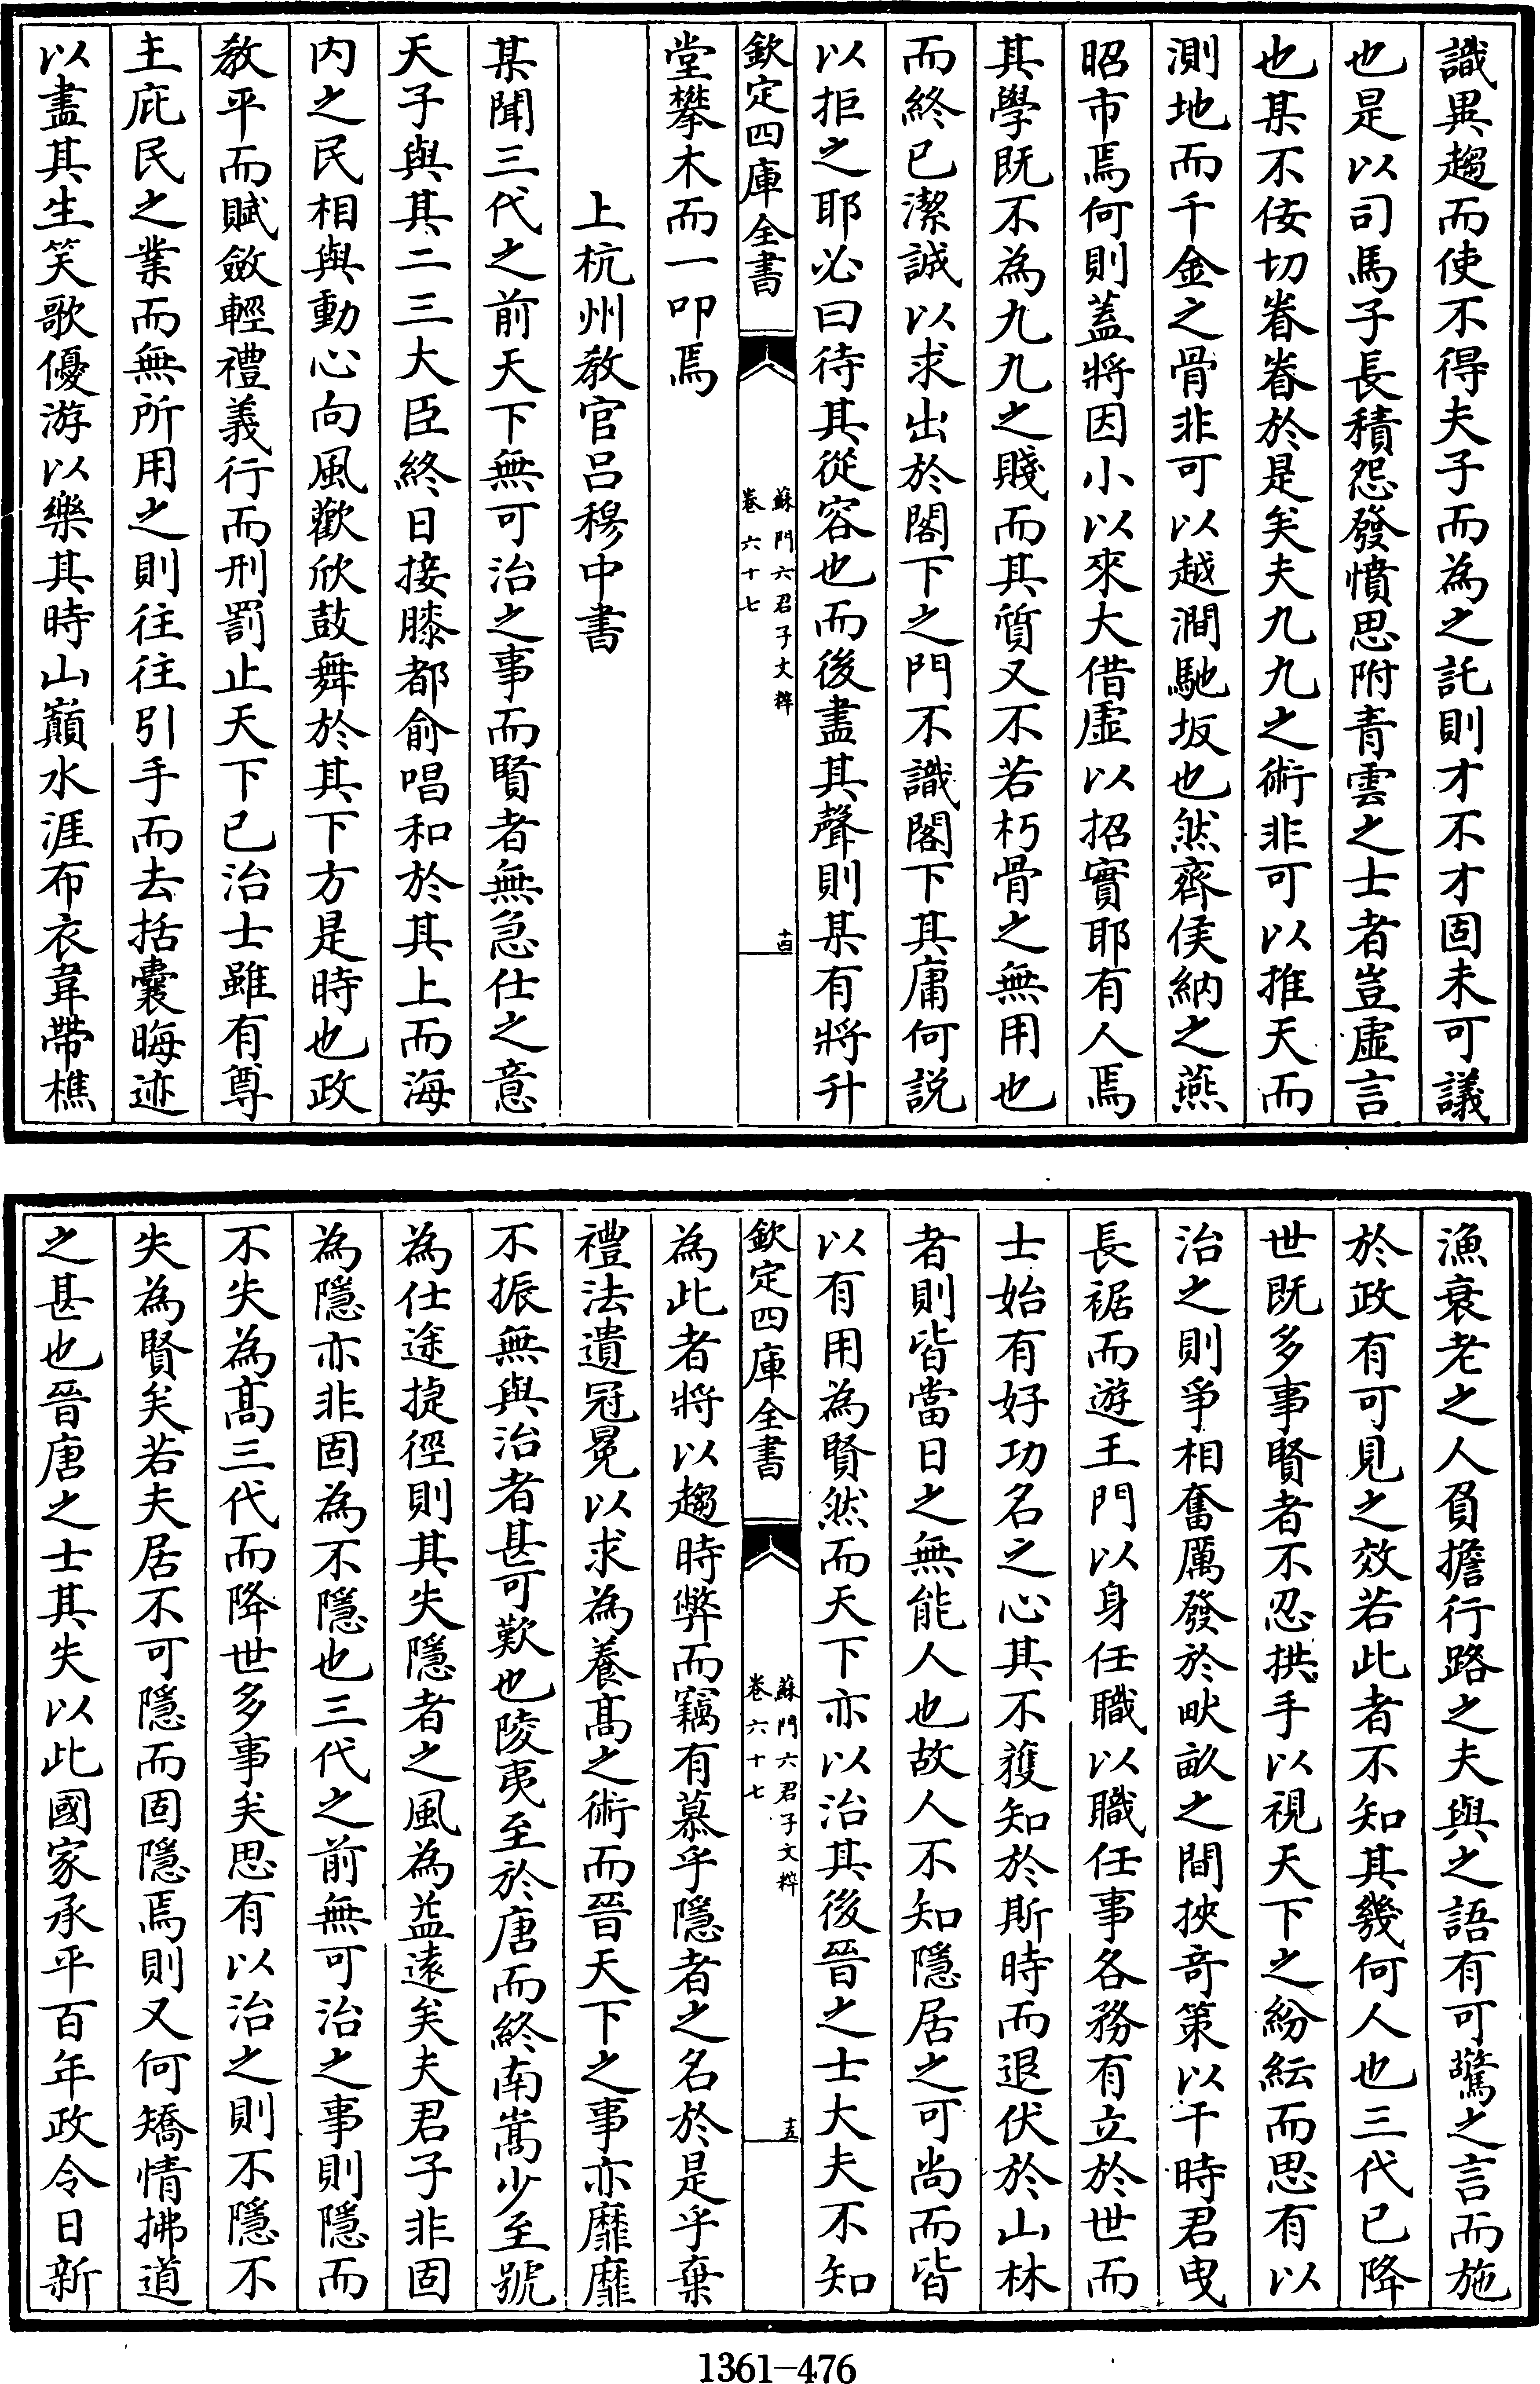 識異趨而使不得夫子而為之託則才不才固未可議
也是以司馬子長積怨發憤思附青雲之士者豈虛言
也某不佞切眷眷於是矣夫九九之術非可以推天而
測地而千金之骨非可以越澗馳坂也然齊侯納之燕
昭市焉何則蓋將因小以來大借虛以招實耶有人焉
其學既不為九九之賤而其質又不若朽骨之無用也
而終已潔誠以求出於閣下之門不識閣下其庸何説
以拒之耶必曰待其從容也而後盡其聲則某有將升
欽定四庫全書
蘇門六君子文粹
卷六十七
十四
堂攀木而一叩焉
上杭州教官呂穆中書
某聞三代之前天下無可治之事而賢者無急仕之意
天子與其二三大臣終日接膝都俞唱和於其上而海
内之民相與動心向風歡欣鼓舞於其下方是時也政
教平而賦斂輕禮義行而刑罰止天下已治士雖有尊
主庇民之業而無所用之則往往引手而去括囊晦迹
以盡其生笑歌優游以樂其時山巔水涯布衣韋帶樵
漁衰老之人負擔行路之夫與之語有可驚之言而施
於政有可見之效若此者不知其幾何人也三代已降
世既多事賢者不忍拱手以視天下之紛紜而思有以
治之則爭相奮厲發於畎畝之間挾奇策以干時君曳
長裾而遊王門以身任職以職任事各務有立於世而
士始有好功名之心其不獲知於斯時而退伏於山林
者則皆當日之無能人也故人不知隱居之可尚而皆
以有用為賢然而天下亦以治其後晉之士大夫不知
欽定四庫全書
蘇門六君子文粹
卷六十七
十五
為此者將以趨時弊而竊有慕乎隱者之名於是乎棄
禮法遺冠冕以求為養高之術而晉天下之事亦靡靡
不振無與治者甚可歎也陵夷至於唐而終南嵩少至號
為仕途捷徑則其失隱者之風為益遠矣夫君子非固
為隱亦非固為不隱也三代之前無可治之事則隱而
不失為髙三代而降世多事矣思有以治之則不隱不
失為賢矣若夫居不可隱而固隱焉則又何矯情拂道
之甚也晉唐之士其失以此國家承平百年政令日新
1361-476